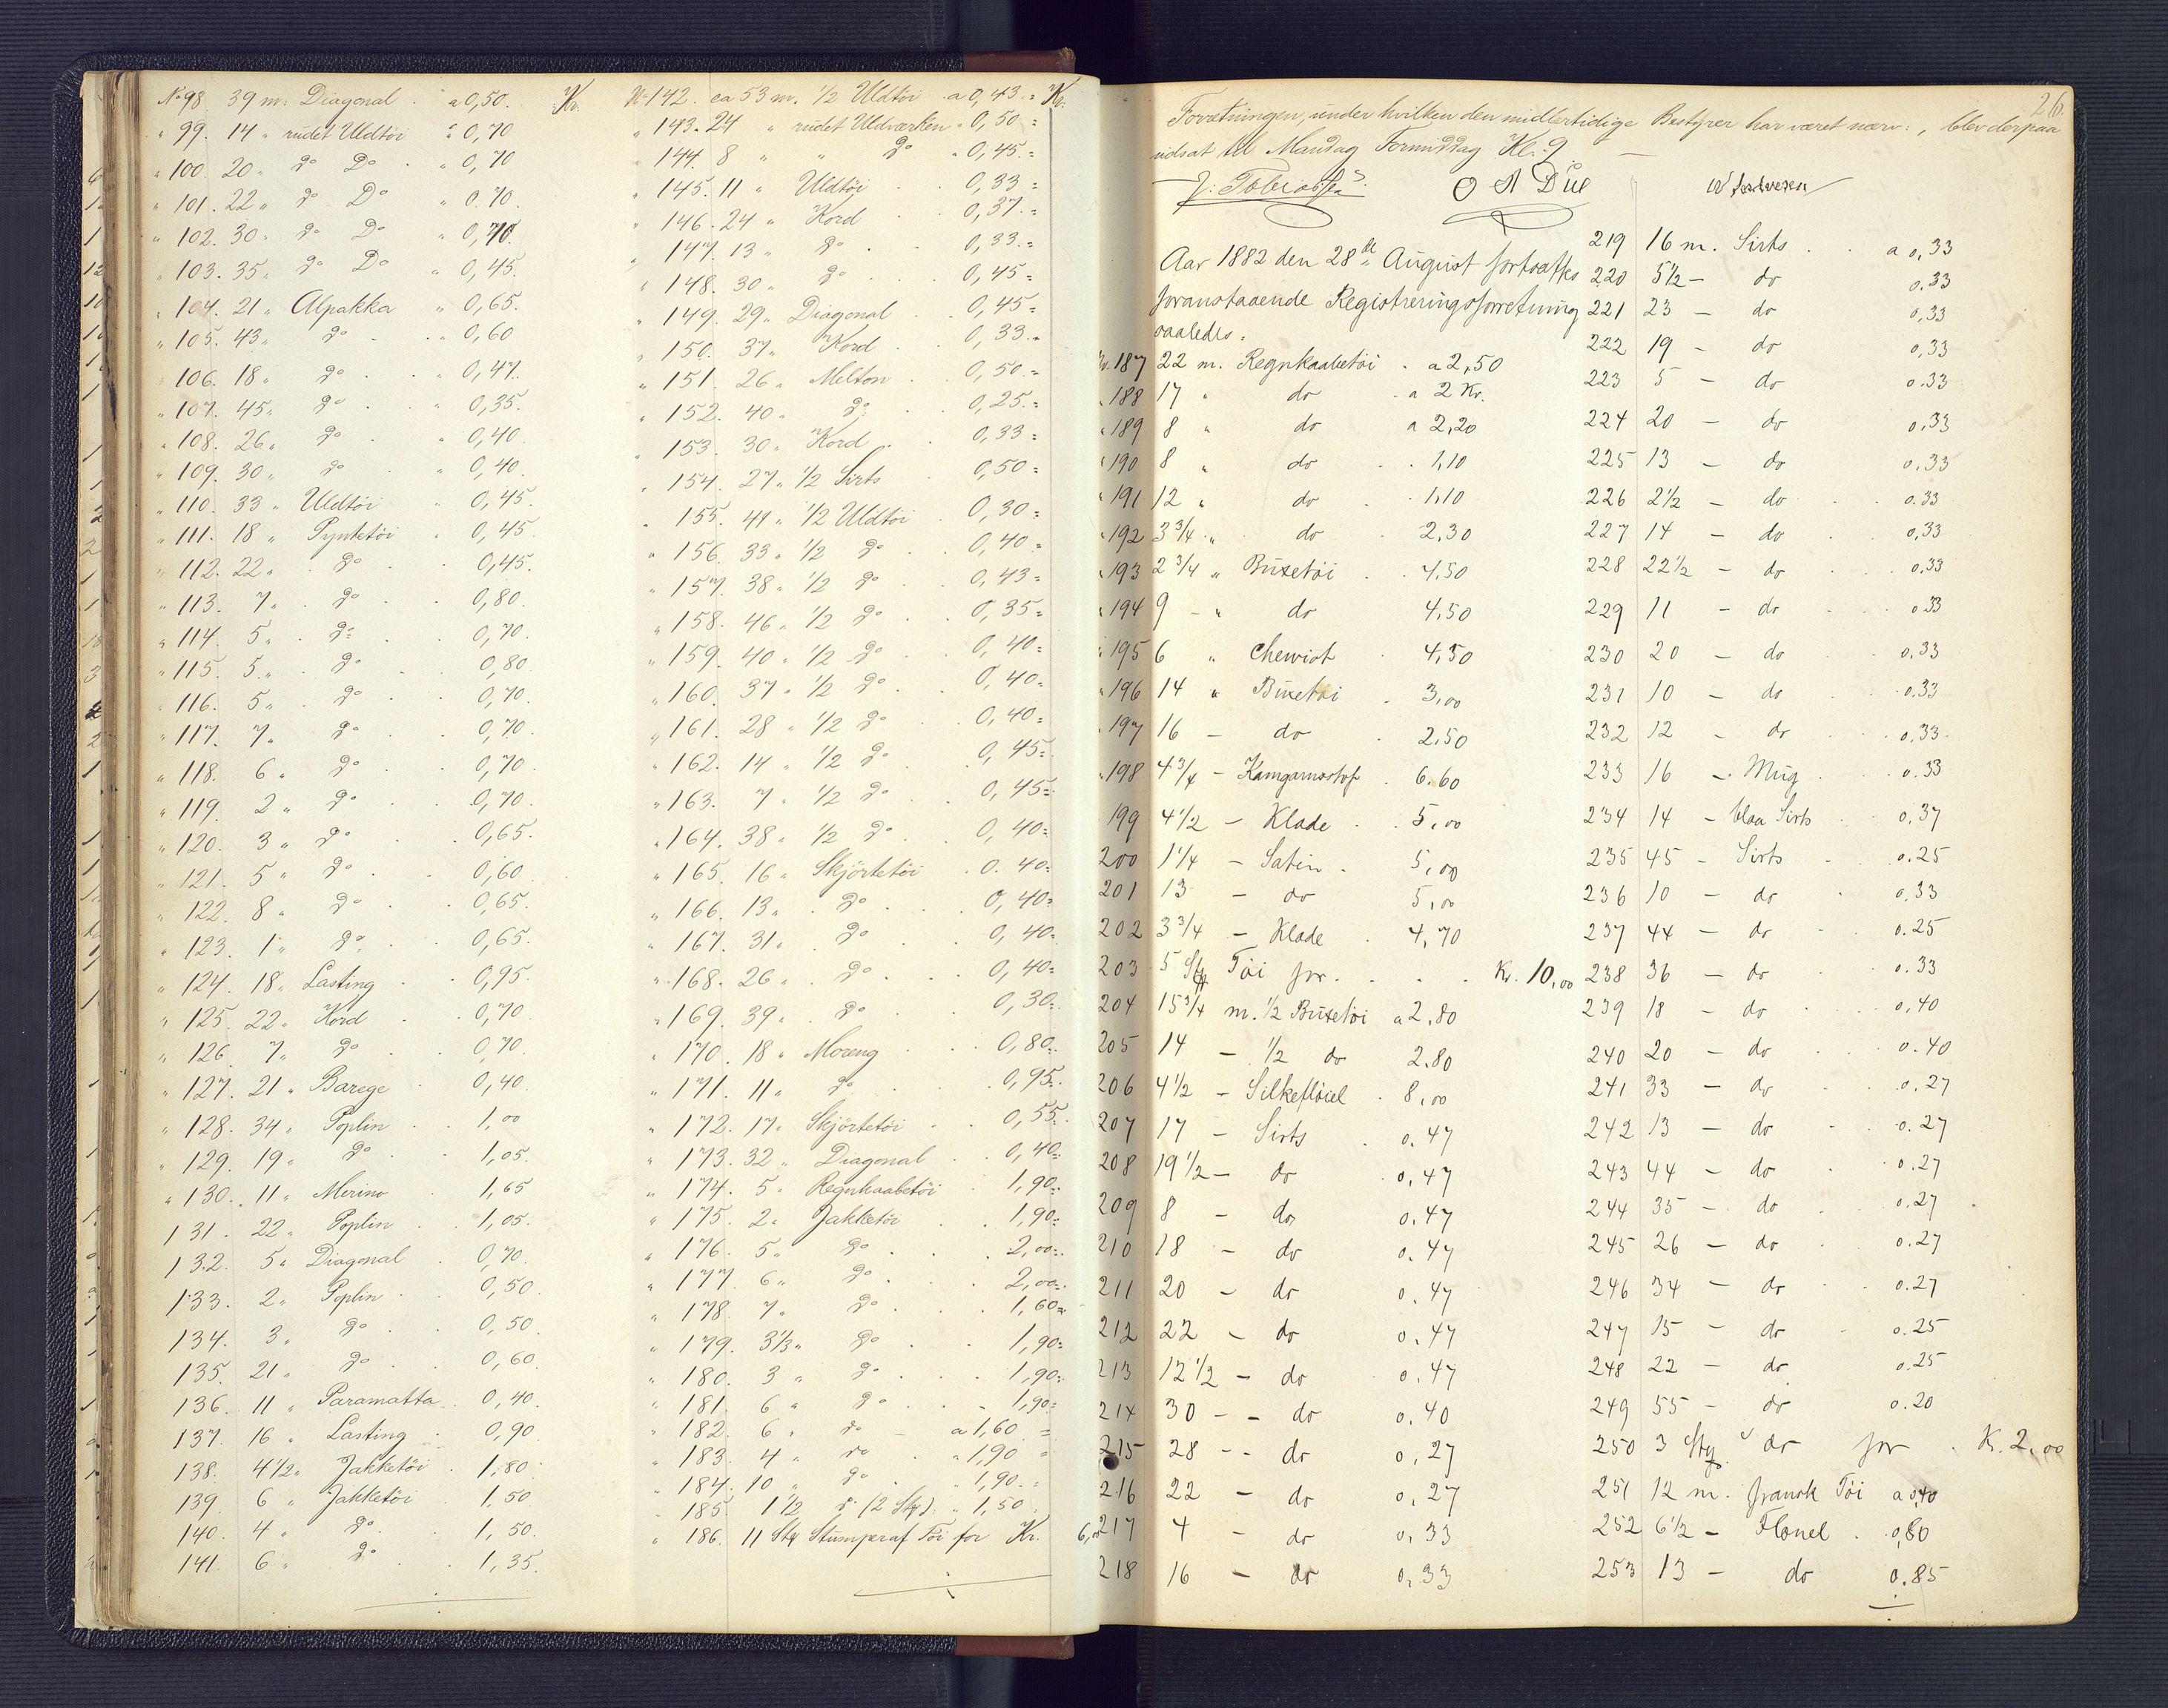 No 98. 39 m. Diagonal . a 0,50. Kr.
" 99. 14 " rudet Uldtöi " 0,70
" 100. 20 " do Do . " 0,70
" 101. 22 " do Do " 0.70.
" 102. 30 " do Do " 0,70.
" 103. 35 " do Do " 0,45.
" 104. 21 " Alpakka " 0,65.
" 105. 43 " do . . 0,60
" 106. 18 " do . . " 0,47.
" 107. 45 " do . . " 0,35.
" 108. 26 " do . . 0,40.
" 109. 30 " do . " 0,40.
" 110. 33 " Uldtöi " 0,45.
" 111. 18 " Pyntetöi " 0,45
" 112. 22 " . do . . 0,45.
" 113. 7 " . do . . 0,80.
" 114. 5 " . do . . 0,70.
" 115. 5 " . do . . 0,80.
" 116. 5 " . do . . 0,70.
" 117. 7 " do . . 0,70.
" 118. 6 " do . . 0,70.
" 119. 2 " do . . 0,70.
" 120. 3 " do . . 0,65.
" 121. 5 " do . . 0,60
" 122. 8 " do . . 0,65.
" 123. 1 " do . . 0,65.
" 124. 18 " Lasting . 0,95.
" 125. 22 " Kord . 0,70.
" 126. 7 " do . . 0,70.
" 127. 21 " Barege . 0,40.
" 128. 34 " Poplin . . 1,00
" 129. 19 " do . . 1,05.
" 130. 11 " Merino . 1,65
131. 22 " Poplin . . 1,05.
132. 5 " Diagonal . 0,70.
133. 2 " Poplin . . 0,50.
134. 3 " do . . 0,50.
135. 21 " do . . 0,60.
136. 11 " Paramatta . 0,40.
137. 16 " Lasting . 0,90.
138. 4 1/2 " Jakketöi . 1,80.
139. 6 " Jakketöi . 1,50.
140. 4 " do . . 1,50.
141. 6 " do . . 1,35.
No 142. ca 53 m. 1/2 Uldtöi a 0,43 = Kr.
" 143. 24 " rudet Uldværken " 0,50 =
" 144. 8 " " do " 0,45 =
" 145. 11 " Uldtöi . . 0,33 =
" 146. 24 " Kord . . 0,37 =
" 147. 13 " do . . 0,33 =
" 148. 30 " do . . 0,45 =
" 149. 29 " Diagonal . . 0,45 =
" 150. 37 " Kord . . 0,33 =
" 151. 26 " Melton . . 0,50 =
" 152. 40 " do . . 0,25 =
" 153. 30 " Kord . . 0,33 =
" 154. 27 " 1/2 Sirts . 0,50 =
" 155. 41 " 1/2 Uldtöi . 0,30 =
" 156. 33 " 1/2 do . . 0,40 =
" 157. 38 " 1/2 do . . 0,43 =
" 158. 46 " 1/2 do . . 0,35 =
" 159. 40 " 1/2 do . . 0,40 =
" 160. 37 " 1/2 do . . 0,40 =
" 161. 28 " 1/2 do . . 0,40 =
" 162. 14 " 1/2 do . . 0,45 =
" 163. 7 " 1/2 do . . 0,45 =
" 164. 38 " 1/2 do . . 0,40 =
" 165. 16 " Skjörtetöi . 0.40 =
" 166. 13 " . do . . 0,40 =
" 167. 31 " . do . . 0,40 =
" 168. 26 " . do . . 0,40 =
" 169. 39 " . do . . 0,30 =
" 170. 18 " Moreng . . 0,80 =
" 171. 11 " do . . 0,95 =
" 172. 17 " Skjörtetöi . . 0,55 =
" 173. 32 " Diagonal . . 0,40 =
" 174. 5 " Regnkaabetöi . 1,90 =
" 175. 2 " Jakketöi . . 1,90 =
" 176. 5 " do . . . 2,00 =
" 177. 6 " do . . . 2,00 =
" 178. 7 " do . . . 1,60 =
" 179. 3 1/3 " do . . 1,90 =
" 180. 3 " do . . . 1,90 =
" 181. 6 " do . . 1,90 =
" 182. 6 " do - a 1,60 =
" 183. 4 " do . " 1,90 "
" 184. 10 " do . . " 1,90 =
" 185. 1 1/2 do (2 Stk) . " 1,50
" 186. 11 Stk Stumper af Töi for Kr. 6,00
26.
Forretningen, under hvilken den midlertidige Bestyrer har været nærv:, blev derpaa
udsat til Mandag Formiddag Kl. 9 —
J: Tobiassen O A Due
Aar 1882 den 28de August fortsattes
foranstaaende Registreringsforretning
saaledes.
Nr. 187 22 m. Regnkaabetöi . a 2,50
" 188 17 " do . a 2 Kr.
" 189 8 " do a 2,20
" 190 8 " do . . 1,10
" 191 12 " do . 1,10
" 192 3 3/4 " do . 2,30
" 193 2 3/4 " Buxetöi . . 4,50
" 194 9 - " do . 4,50
" 195 6 " Cheviot . 4,50
" 196 14 " Buxetöi . 3,00
" 197 16 - do . 2,50
" 198 4 3/4 - Kamgarnsstof . 6.60
199 4 1/2 - Klæde . . 5,00
200 1 1/4 - Satin . 5,00
201 13 - do 5,00
202 3 3/4 - Klæde . 4,70
203 5 Stk Töi for . . . . Kr. 10,00
204 15 3/4 m. 1/2 Buxetöi a 2,80
205 14 - 1/2 do 2.80
206 4 1/2 - Silkeflöiel . 8,00
207 17 - Sirts . 0.47
208 19 1/2 - do . 0,47
209 8 - do 0.47
210 18 - do 0.47
211 20 - do 0.47
212 22 - do 0.47
213 12 1/2 - do . 0.47
214 30 - - do 0.40
215 28 - - do 0,27
216 22 - do 0,27
217 4 - do 0,33
218 16 - do 0,33
219 16 m. Sirts . . a 0,33
220 5 1/2 - do 0.33
221 23 - do 0,33
222 19 - do 0,33
223 5 - do 0.33
224 20 - do 0,33
225 13 - do 0,33
226 2 1/2 - do . . 0.33
227 14 - do . 0,33
228 22 1/2 - do . . 0.33
229 11 - do . . 0.33
230 20 - do . . 0.33
231 10 - do . . 0.33
232 12 - do . . 0.33.
233 16 - Mug . . 0.33
234 14 - blaa Sirts . 0.37
235 45 - Sirts . 0.25
236 10 - do . 0.33
237 44 - do . . 0.25
238 36 - do . . 0.33
239 18 - do . . 0,40
240 20 - do . . 0.40
241 33 - do . . 0.27
242 13 - do . . 0.27
243 44 - do . 0.27
244 35 - do . . 0.27
245 26 - do . 0.27
246 34 - do . . 0.27
247 15 - do . 0.25
248 22 - do . 0.25
249 55 - do . 0.20
250 3 Stk do for . K. 2,00
251 12 m. fransk Töi a 0,40
252 6 1/2 - Flonel . 0,80
253 13 - do 0.85